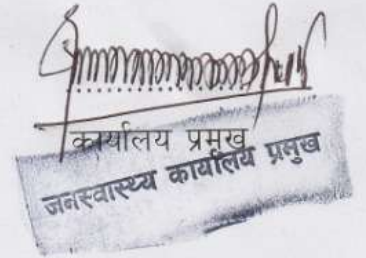 कार्यालय प्रमुख
जनस्वास्थ्य कार्यालय प्रमुख